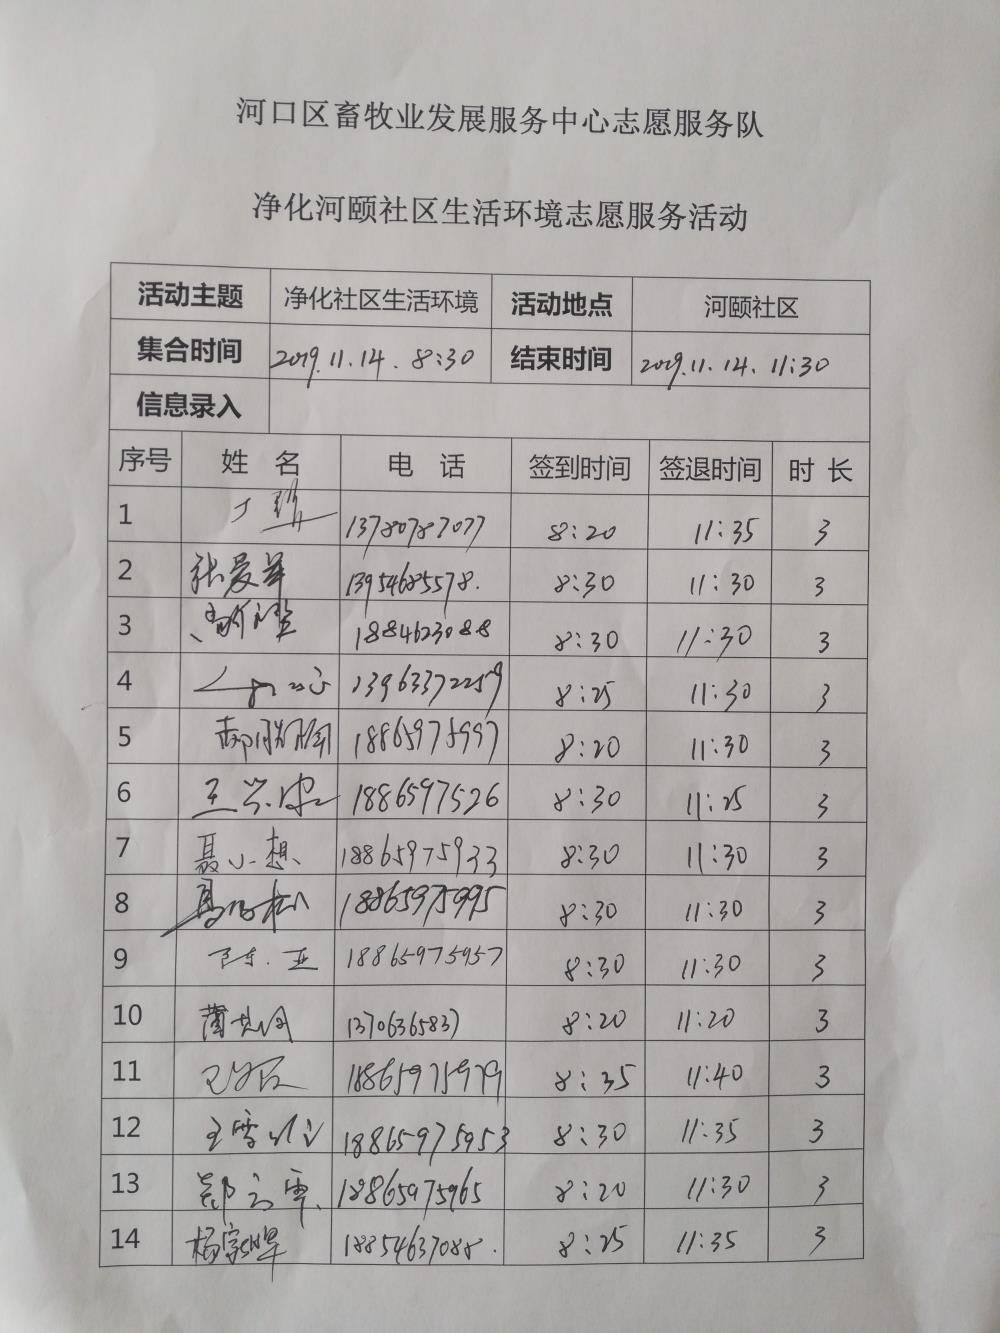 河口区畜牧业发展服务中心志愿服务队
净化河颐社区生活环境志愿服务活动
活动主题 净化社区生活环境 活动地点 河颐社区
集合时间 2019.11.14. 8:30 结束时间 2019.11.14. 11:30
信息录入
序号 姓 名 电 话 签到时间 签退时间 时 长
1 13780787077 8:20 11:35 3
2 张爱军 13954685578. 8:30 11:30 3
3 8:30 11:30 3
4 13963372259 8:25 11:30 3
5 18865975997 8:20 11:30 3
6 王兴忠 1886597526 8:30 11:25 3
7 聂小想 18865975933 8:30 11:30 3
8 18865975995 8:30 11:30 3
9 陈亚 18865975957 8:30 11:30 3
10 8:20 11:20 3
11 18865975979 8:35 11:40 3
12 18865975953 8:30 11:35 3
13 18865975965 8:20 11:30 3
14 18854637088. 8:25 11:35 3